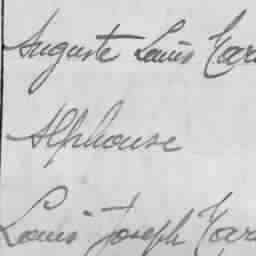 Auguste Louis
Alphonse
Louis Joseph